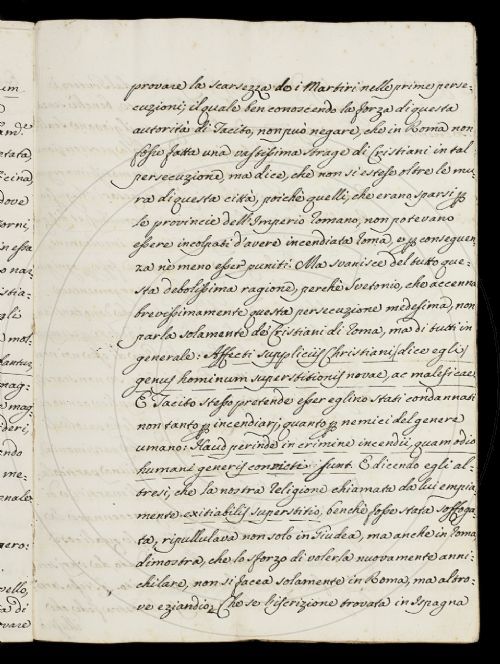 um
am:de
tata,
icina,
dove
orni,
in essa
o naz
istia=
gli
mol-
mag=
e mag
ideri,
endo
me-
onale
pero:
pello,
ia di
ovare
provare la scarsezza de i Martiri nelle prime perse-
cuzioni; il quale ben conoscendo la forza di questa
autorità di Tacito, non può negare, che in Roma non
fosse fatta una vastissima strage di Cristiani in tal
persecuzione, ma dice, che non si estese oltre le mu
ra di questa città, poichè quelli, che erano sparsi ꝑ
le provincie dell'Imperio Romano, non potevano
essere incolpati d'avere incendiata Roma, e ꝑ conseguen
za nè meno esser puniti. Ma svanisce del tutto que-
sta debolissima ragione, perchè Svetonio, che accenna
brevissimamente questa persecuzione medesima, non
parla solamente de Cristiani di Roma, ma di tutti in
generale: Affecti suppliciis Christiani (dice egli)
genus hominum superstitionis novae, ac maleficae.
E Tacito stesso pretende esser eglino stati condannati
non tanto ꝑ incendiarj, quanto ꝑ nemici del genere
umano: Haud perinde in crimine incendii, quam odio
humani generis convicti sunt. E dicendo egli al-
tresì, che la nostra Religione chiamata da lui empia
mente exitiabilis superstitio, benchè fosse stata soffoga
ta, ripullulava non solo in Giudea, ma anche in Roma
dimostra, che lo sforzo di volerla nuovamente anni-
chilare, non si facea solamente in Roma, ma altro-
ve eziandio. Che se l'iscrizione trovata in Ispagna